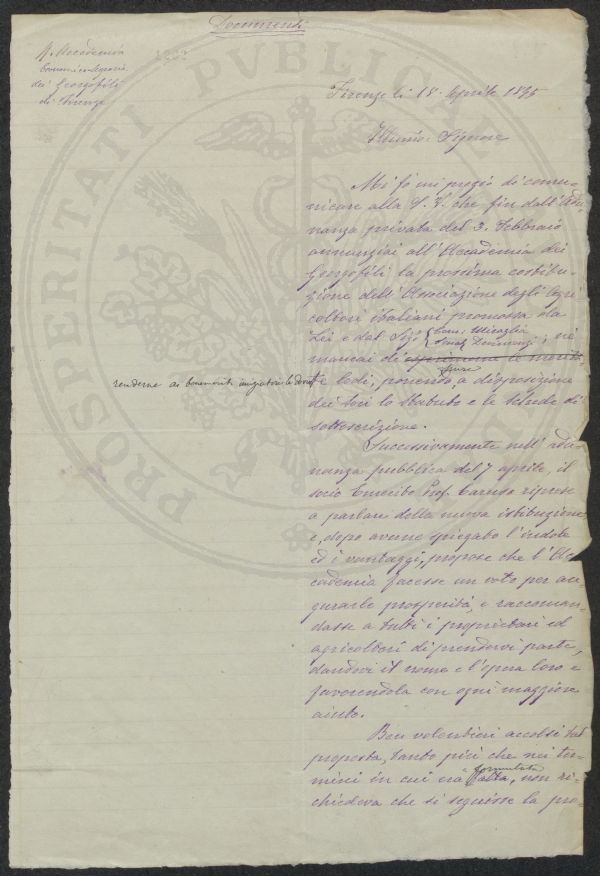 Documenti
R. Accademia
Economico-Agraria
dei Georgofili
di Firenze
Firenze li 18 Aprile 1895
Illmo: Signore
Mi fò un pregio di comu-
nicare alla S. V. che fin dall'Adu-
nanza privata del 3. Febbraio
annunziai all'Accademia dei
Georgofili la prossima costitu-
zione dell'Associazione degli Agri
coltori italiani promossa da
Lei e dal Sigi Comm: Miraglia
Senat: Devincenzi, nè
mancai di esprimerne le meritate
pure
renderne ai benemeriti iniziatori le dovute
lodi, ponendo a disposizione
dei Soci lo Statuto e le schede di
sottoscrizione.
Successivamente nell'adu-
nanza pubblica del 7 aprile, il
socio Emerito Prof. Caruso riprese
a parlare della nuova istituzione
e, dopo averne spiegato l'indole
ed i vantaggi, propose che l'Ac
cademia facesse un voto per au
gurarle prosperità, e raccoman-
dasse a tutti i proprietari ed
agricoltori di prendervi parte,
dandovi il nome e l'opera loro e
favorendola con ogni maggiore
aiuto.
Ben volentieri accolsi tal
proposta, tanto più che nei ter-
mini in cui era fatta, non ri-
formulata
chiedeva che si seguisse la pro-
PROSPERITATI PUBLICAE